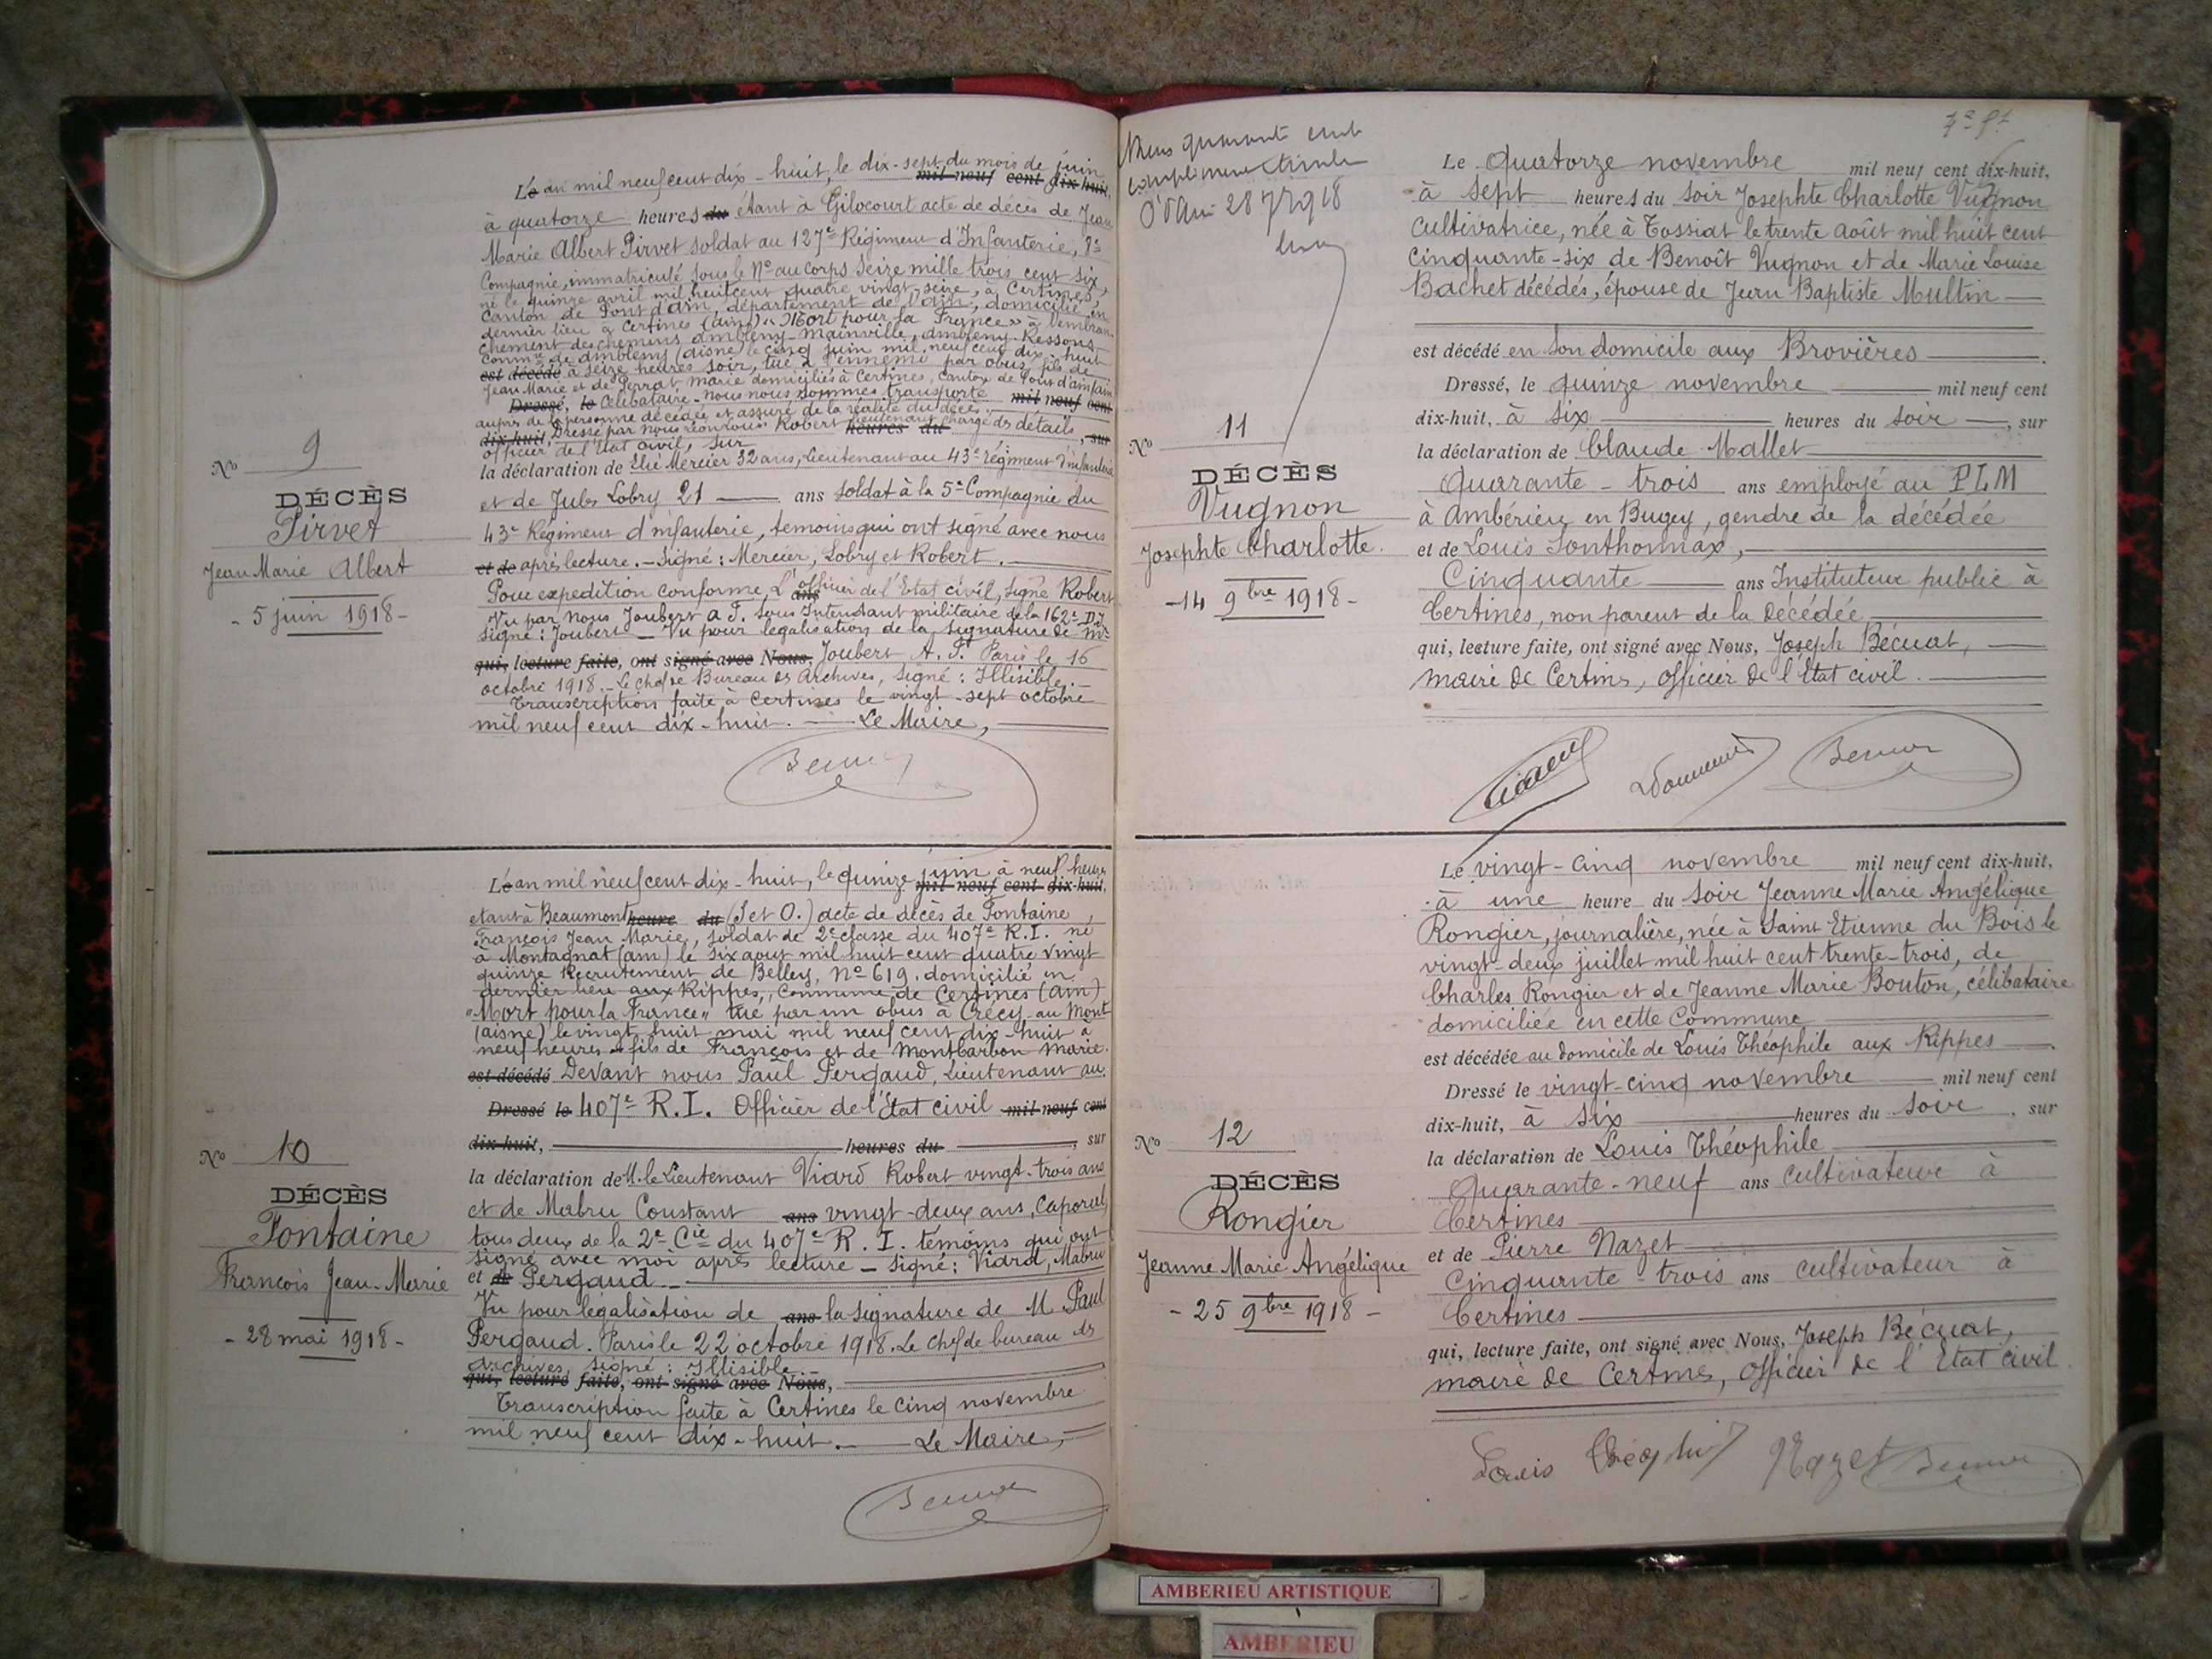 L'an mil neuf cent dix-huit, le dix-sept du mois de juin
mil neuf cent dix-huit,
à quatorze heures du étant à Gilocourt acte de décès de Jean
Marie Albert Pirvet soldat au 127e Régiment d'Infanterie, 8e
Compagnie, immatriculé sous le No au corps Seize mille trois cent six,
né le quinze avril mil huit cent quatre vingt-seize, à Certines,
canton de Pont d'ain, département de l'ain, domicilié en
dernier lieu à Certines (ain) "Mort pour la France" à l'embran-
chement des chemins ambleny-Mainville, ambleny-Ressons
comme de ambleny (aisne) le cinq juin mil neuf cent dix-huit
est décédé à seize heures soir, tué à l'ennemi par obus, fils de
Jean Marie et de Perrat Marie domiciliés à Certines, canton de Pont d'ain (ain)
Dressé, le Célibataire. Nous nous sommes transporté mil neuf cent
auprès de la personne décédée et assuré de la réalité du décès.
dix-huit, Dressé par nous Robert lieutenant chargé des détails, heures du sur
officier de l'Etat civil, sur
la déclaration de Elie Mercier 32 ans, lieutenant au 43e régiment d'infanterie
No 9
et de Jules Lobry 21 ans soldat à la 5e Compagnie du
DÉCÈS
Pirvet
43e Régiment d'infanterie, temoins qui ont signé avec nous
Jean Marie Albert
et de après lecture. - Signé: Mercier, Lobry et Robert.
Pour expedition conforme, L'officier de l'Etat civil, signé Robert
ans
- 5 juin 1918 -
Vu par Nous Joubert A. T. Sous Intendant militaire de la 162e D.I.
signé: Joubert - Vu pour legalisation de la signature de Mr
qui, lecture faite, ont signé avec Nous, Joubert A. T. Paris le 16
octobre 1918. - Le chef de Bureau des Archives, signé: Illisible. -
Transcription faite à Certines le vingt-sept octobre
mil neuf cent dix-huit. - Le Maire,
L'an mil neuf cent dix-huit, le quinze juin à neuf heures
mil neuf cent dix-huit,
etant à Beaumont heure du (S et O.) acte de décès de Fontaine
François Jean Marie, soldat de 2e classe du 407e R.I. né
à Montagnat (ain) le six aout mil huit cent quatre vingt
quinze Recrutement de Belley, No 619. domicilié en
dernier lieu aux Rippes, Commune de Certines (ain)
"Mort pour la France" tué par un obus à Crécy-au-Mont
(aisne) le vingt huit mai mil neuf cent dix-huit à
neuf heures fils de François et de Montbarbon Marie.
est décédé Devant nous Paul Pergaud, Lieutenant au
Dressé le 407e R.I. Officier de l'Etat civil mil neuf cent
dix-huit, heures du, sur
No 10
la déclaration de M. le Lieutenant Viard Robert vingt-trois ans
DÉCÈS
et de Mabru Constant ans vingt-deux ans, Caporal
Fontaine
tous deux de la 2e Cie du 407e R. I. témoins qui ont
signé avec moi après lecture - signé: Viard, Mabru
François Jean-Marie
et de Pergaud -
Vu pour légalisation de ans la signature de M. Paul
- 28 mai 1918 -
Pergaud. Paris le 22 octobre 1918. Le chef de bureau des
archives, signé: Illisible -
qui, lecture faite, ont signé avec Nous,
Transcription faite à Certines le cinq novembre
mil neuf cent dix-huit. - Le Maire,
28 7 1918
Le quatorze novembre mil neuf cent dix-huit,
à sept heures du soir Josephte Charlotte Vugnon
cultivatrice, née à Tossiat le trente août mil huit cent
cinquante-six de Benoît Vugnon et de Marie Louise
Bachet décédés, épouse de Jean Baptiste Multin
est décédé en son domicile aux Brovières
Dressé, le quinze novembre mil neuf cent
dix-huit, à six heures du soir, sur
No 11
la déclaration de Claude Mallet
DÉCÈS
Quarante-trois ans employé au PLM
Vugnon
à Ambérieu en Bugey, gendre de la décédée
Josephte Charlotte.
et de Louis Jonthonnax,
Cinquante ans Instituteur public à
- 14 9bre 1918 -
Certines, non parent de la décédée
qui, lecture faite, ont signé avec Nous, Joseph Bécuat,
maire de Certines, Officier de l'Etat civil.
Le vingt-cinq novembre mil neuf cent dix-huit,
à une heure du soir Jeanne Marie Angélique
Rongier, journalière, née à Saint Etienne du Bois le
vingt-deux juillet mil huit cent trente-trois, de
Charles Rongier et de Jeanne Marie Bouton, célibataire
domiciliée en cette Commune
est décédée au domicile de Louis Théophile aux Rippes
Dressé le vingt-cinq novembre mil neuf cent
dix-huit, à six heures du soir, sur
No 12
la déclaration de Louis Théophile
DÉCÈS
Quarante-neuf ans cultivateur à
Rongier
Certines
et de Pierre Nazet
Jeanne Marie Angélique
Cinquante-trois ans cultivateur à
- 25 9bre 1918 -
Certines
qui, lecture faite, ont signé avec Nous, Joseph Bécuat,
maire de Certines, Officier de l'Etat civil.
Louis Théophile Nazet
AMBERIEU ARTISTIQUE
AMBERIEU